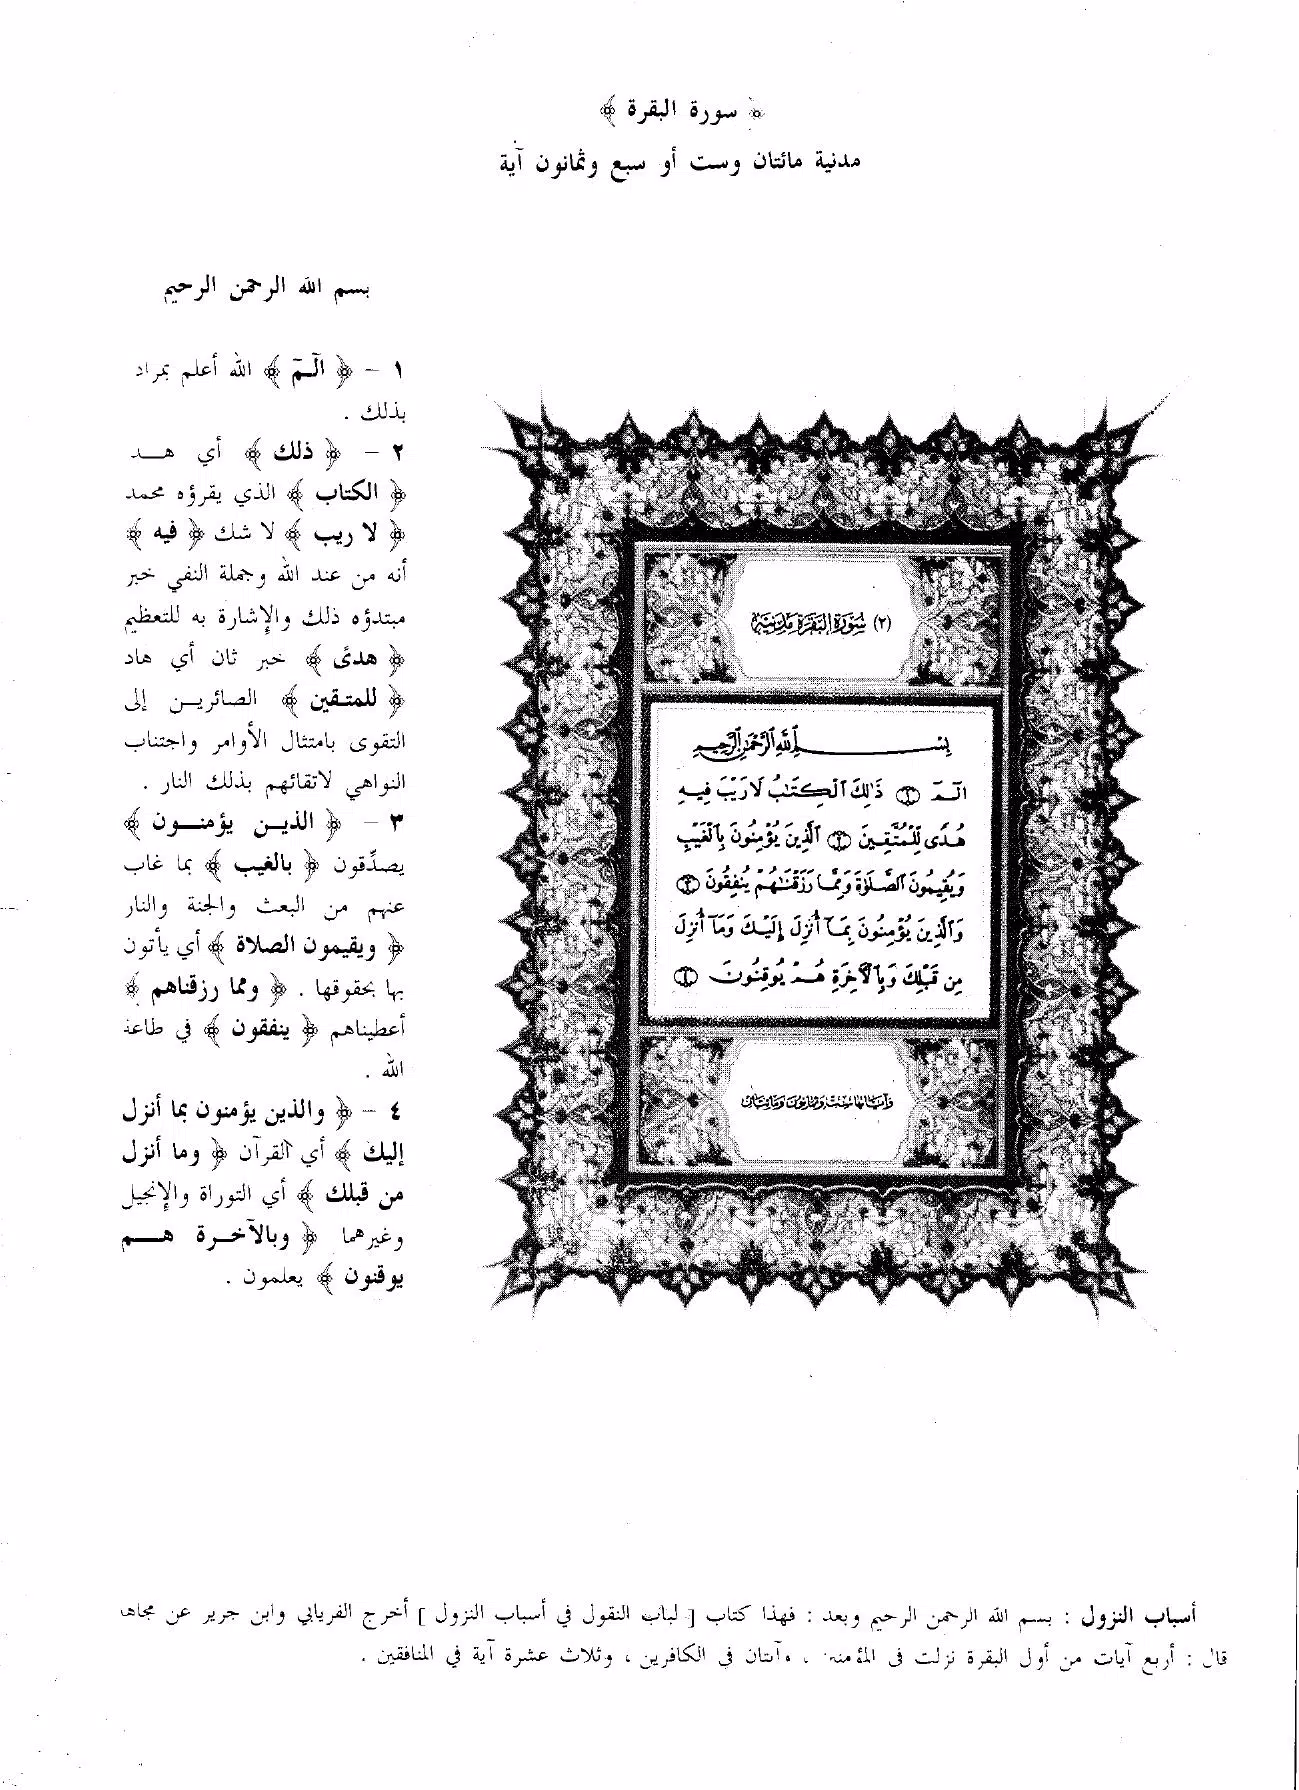 ﴿ سورة البقرة ﴾
مدنية مائتان وست أو سبع وثمانون آية
بسم الله الرحمن الرحيم
١ - ﴿ الٓـمٓ ﴾ الله أعلم بمراد
بذلك .
٢ - ﴿ ذلك ﴾ أي هـــد
﴿ الكتاب ﴾ الذي يقرؤه محمد
﴿ لا ريب ﴾ لا شك ﴿ فيه ﴾
أنه من عند الله وجملة النفي خبر
مبتدؤه ذلك والإشارة به للتعظيم
﴿ هدىً ﴾ خبر ثان أي هاد
﴿ للمتـقين ﴾ الصائريـن إلى
التقوى بامتثال الأوامر واجتناب
النواهي لاتقائهم بذلك النار .
٣ - ﴿ الذيـن يؤمنـــون ﴾
يصدِّقون ﴿ بالغيب ﴾ بما غاب
عنهم من البعث والجنة والنار
﴿ ويقيمون الصلاة ﴾ أي يأتون
بها بحقوقها . ﴿ ومما رزقناهم ﴾
أعطيناهم ﴿ ينفقون ﴾ في طاعة
الله .
٤ - ﴿ والذين يؤمنون بما أنزل
إليك ﴾ أي القرآن ﴿ وما أنزل
من قبلك ﴾ أي التوراة والإنجيل
وغيرهما ﴿ وبالآخـرة هـــم
يوقنون ﴾ يعلمون .
(٢) سُورَةِ البَقَرَةِ مَدَنِيَّة
بِسْــــــمِ ٱللَّهِ ٱلرَّحْمَٰنِ ٱلرَّحِيمِ
الٓـمٓ ۝١ ذَٰلِكَ ٱلْكِتَٰبُ لَا رَيْبَ فِيهِ
هُدًى لِّلْمُتَّقِينَ ۝٢ ٱلَّذِينَ يُؤْمِنُونَ بِٱلْغَيْبِ
وَيُقِيمُونَ ٱلصَّلَوٰةَ وَمِمَّا رَزَقْنَٰهُمْ يُنفِقُونَ ۝٣
وَٱلَّذِينَ يُؤْمِنُونَ بِمَآ أُنزِلَ إِلَيْكَ وَمَآ أُنزِلَ
مِن قَبْلِكَ وَبِٱلْأَخِرَةِ هُمْ يُوقِنُونَ ۝٤
وآياتها ست وثمانون ومائتان
أسباب النزول : بسم الله الرحمن الرحيم وبعد : فهذا كتاب [ لباب النقول في أسباب النزول ] أخرج الفريابي وابن جرير عن مجاهد
قال : أربع آيات من أول البقرة نزلت في ، وآيتان في الكافرين ، وثلاث عشرة آية في المنافقين .